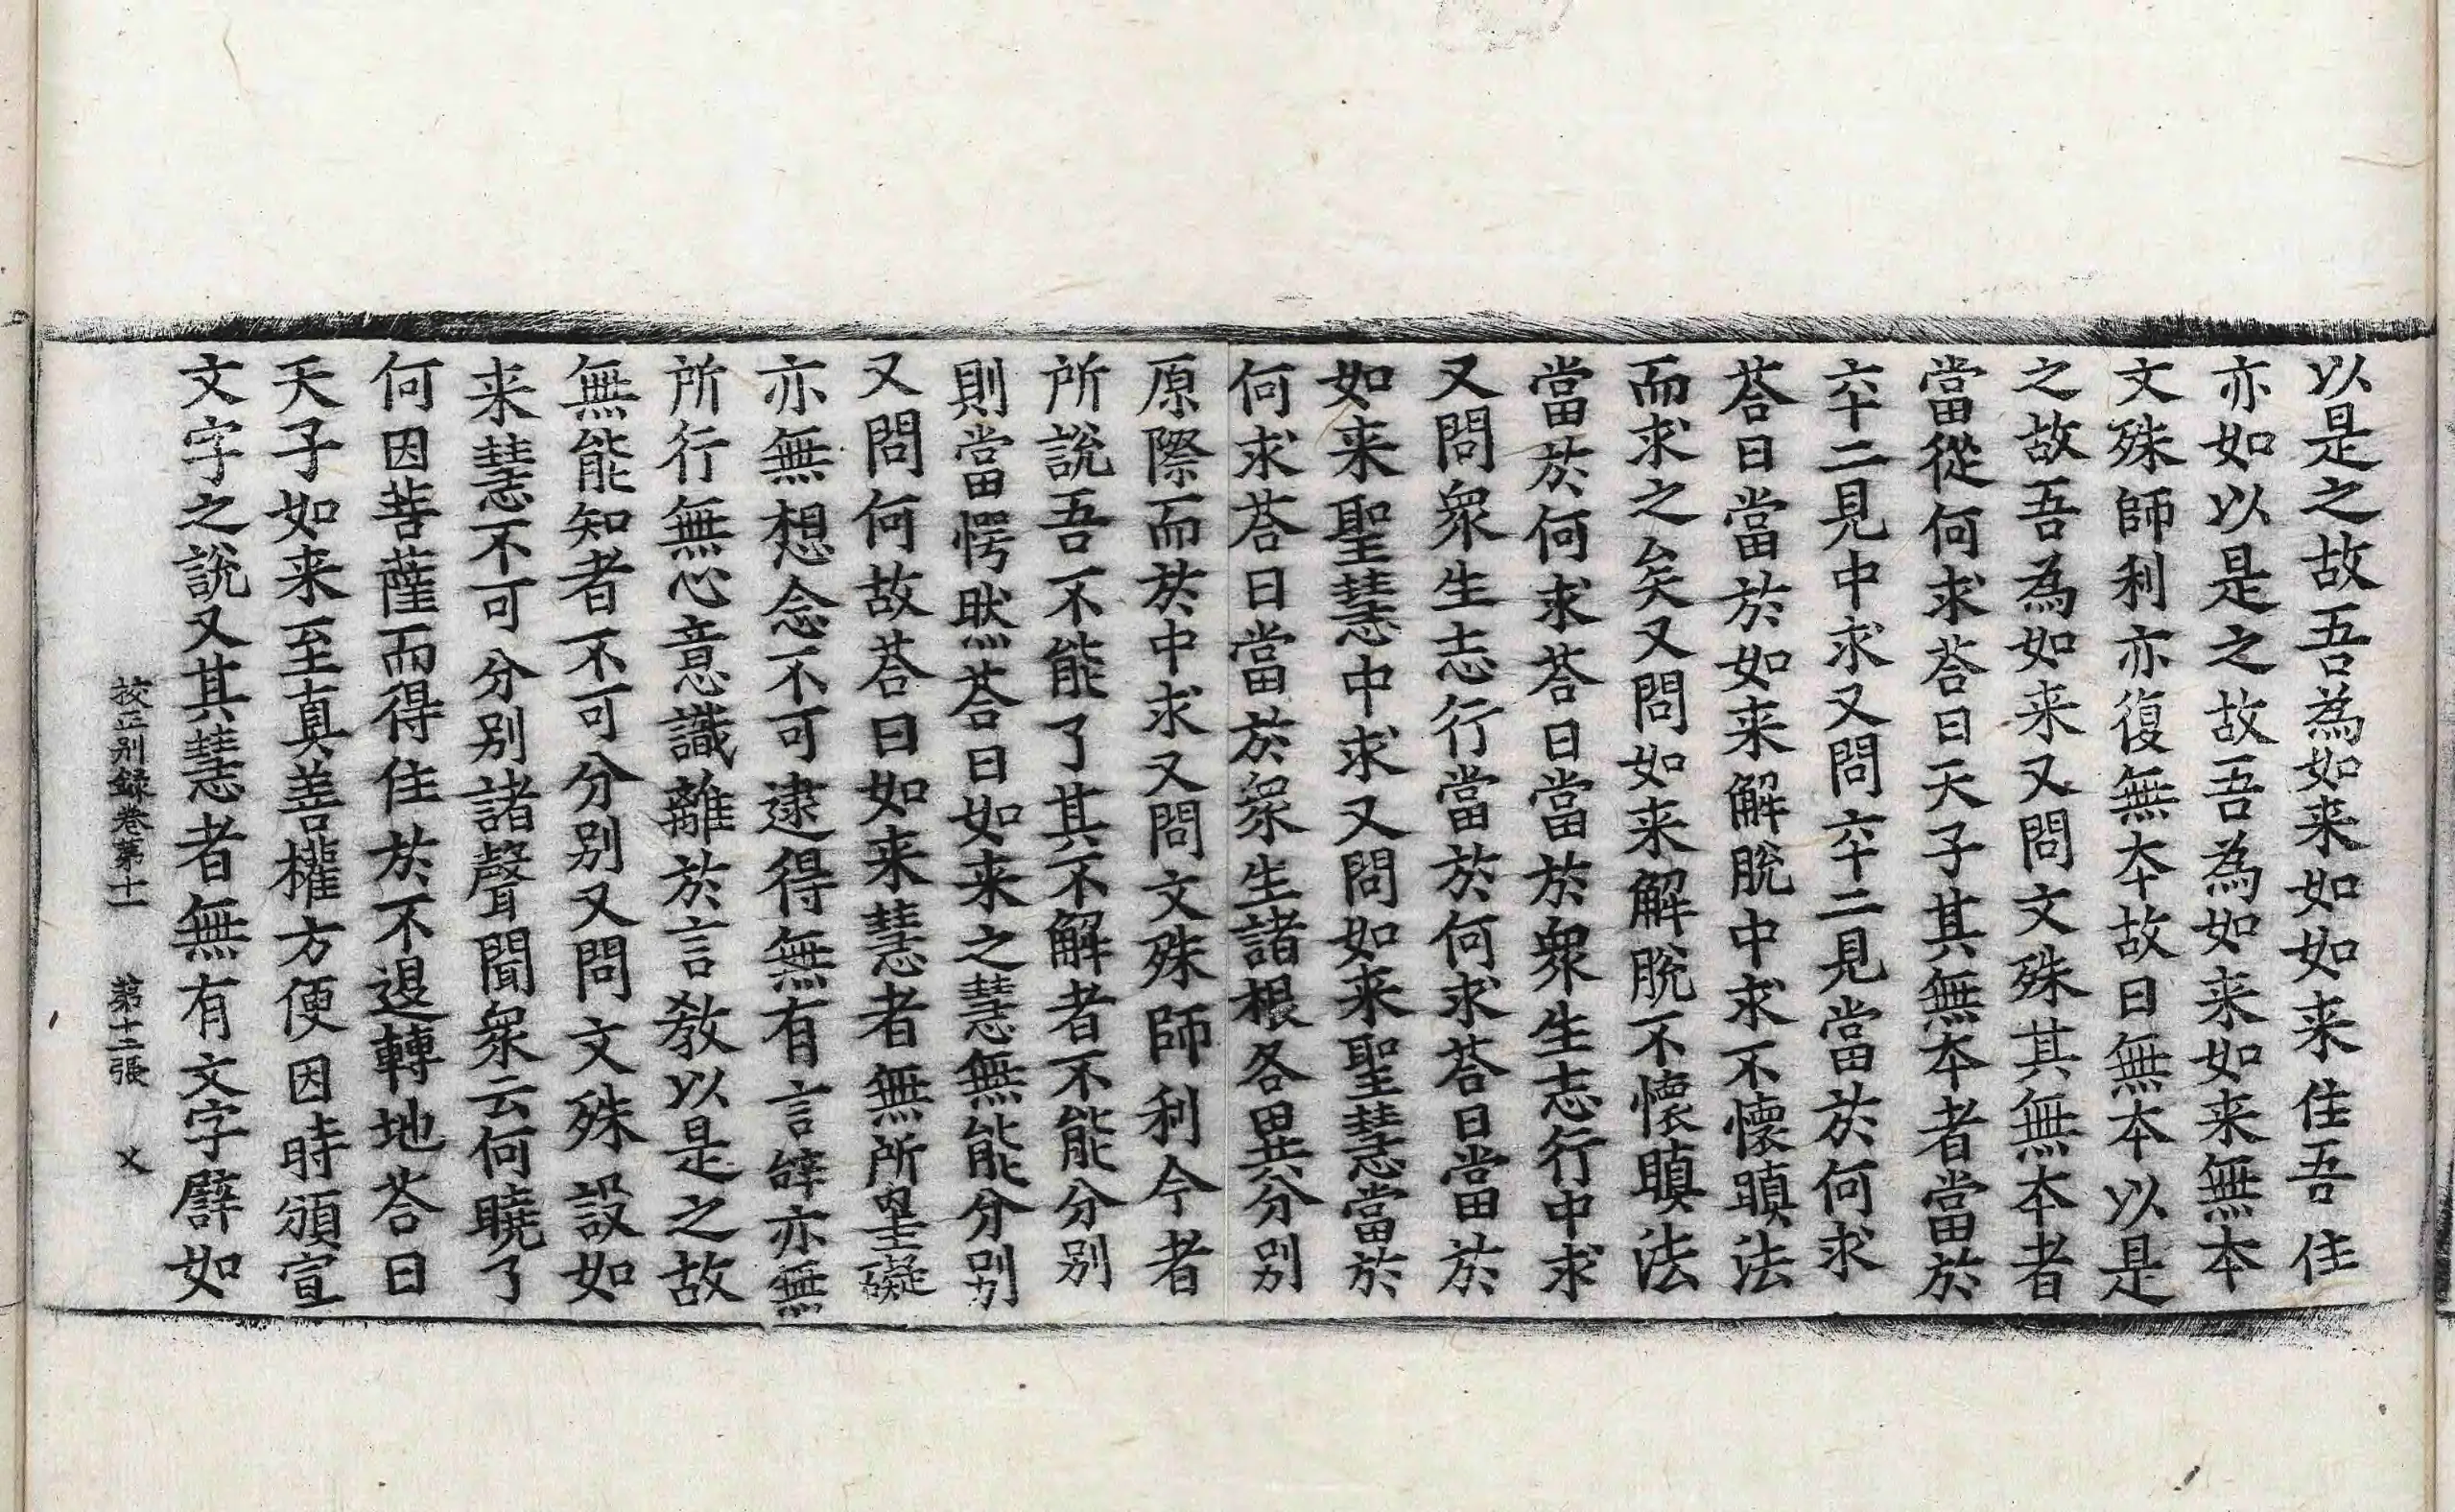 以是之故吾為如来如如来住吾住
亦如以是之故吾為如来如来無本
文殊師利亦復無本故曰無本以是
之故吾為如来又問文殊其無本者
當從何求荅曰天子其無本者當於
六十二見中求又問六十二見當於何求
荅曰當於如来解脫中求不懷瞋法
而求之矣又問如来解脫不懷瞋法
當於何求荅曰當於衆生志行中求
又問衆生志行當於何求荅曰當於
如来聖慧中求又問如来聖慧當於
何求荅曰當於衆生諸根各異分別
原際而於中求又問文殊師利今者
所說吾不能了其不解者不能分別
則當愕然荅曰如来之慧無能分別
又問何故荅曰如来慧者無所罣礙
亦無想念不可逮得無有言辤亦無
所行無心意識離於言教以是之故
無能知者不可分別又問文殊設如
来慧不可分別諸聲聞衆云何曉了
何因菩薩而得住於不退轉地荅曰
天子如来至真善權方便因時頒宣
文字之說又其慧者無有文字譬如
挍正別録卷第十一 第十二張 㸚